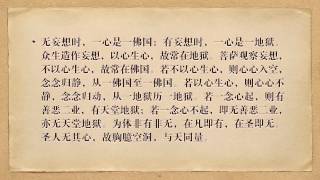 • 无妄想时，一心是一佛国；有妄想时，一心是一地狱。
众生造作妄想，以心生心，故常在地狱。菩萨观察妄想，
不以心生心，故常在佛国。若不以心生心，则心心入空，
念念归静，从一佛国至一佛国。若以心生心，则心心不
静，念念归动，从一地狱历一地狱。若一念心起，则有
善恶二业，有天堂地狱；若一念心不起，即无善恶二业，
亦无天堂地狱。为体非有非无，在凡即有，在圣即无。
圣人无其心，故胸臆空洞，与天同量。